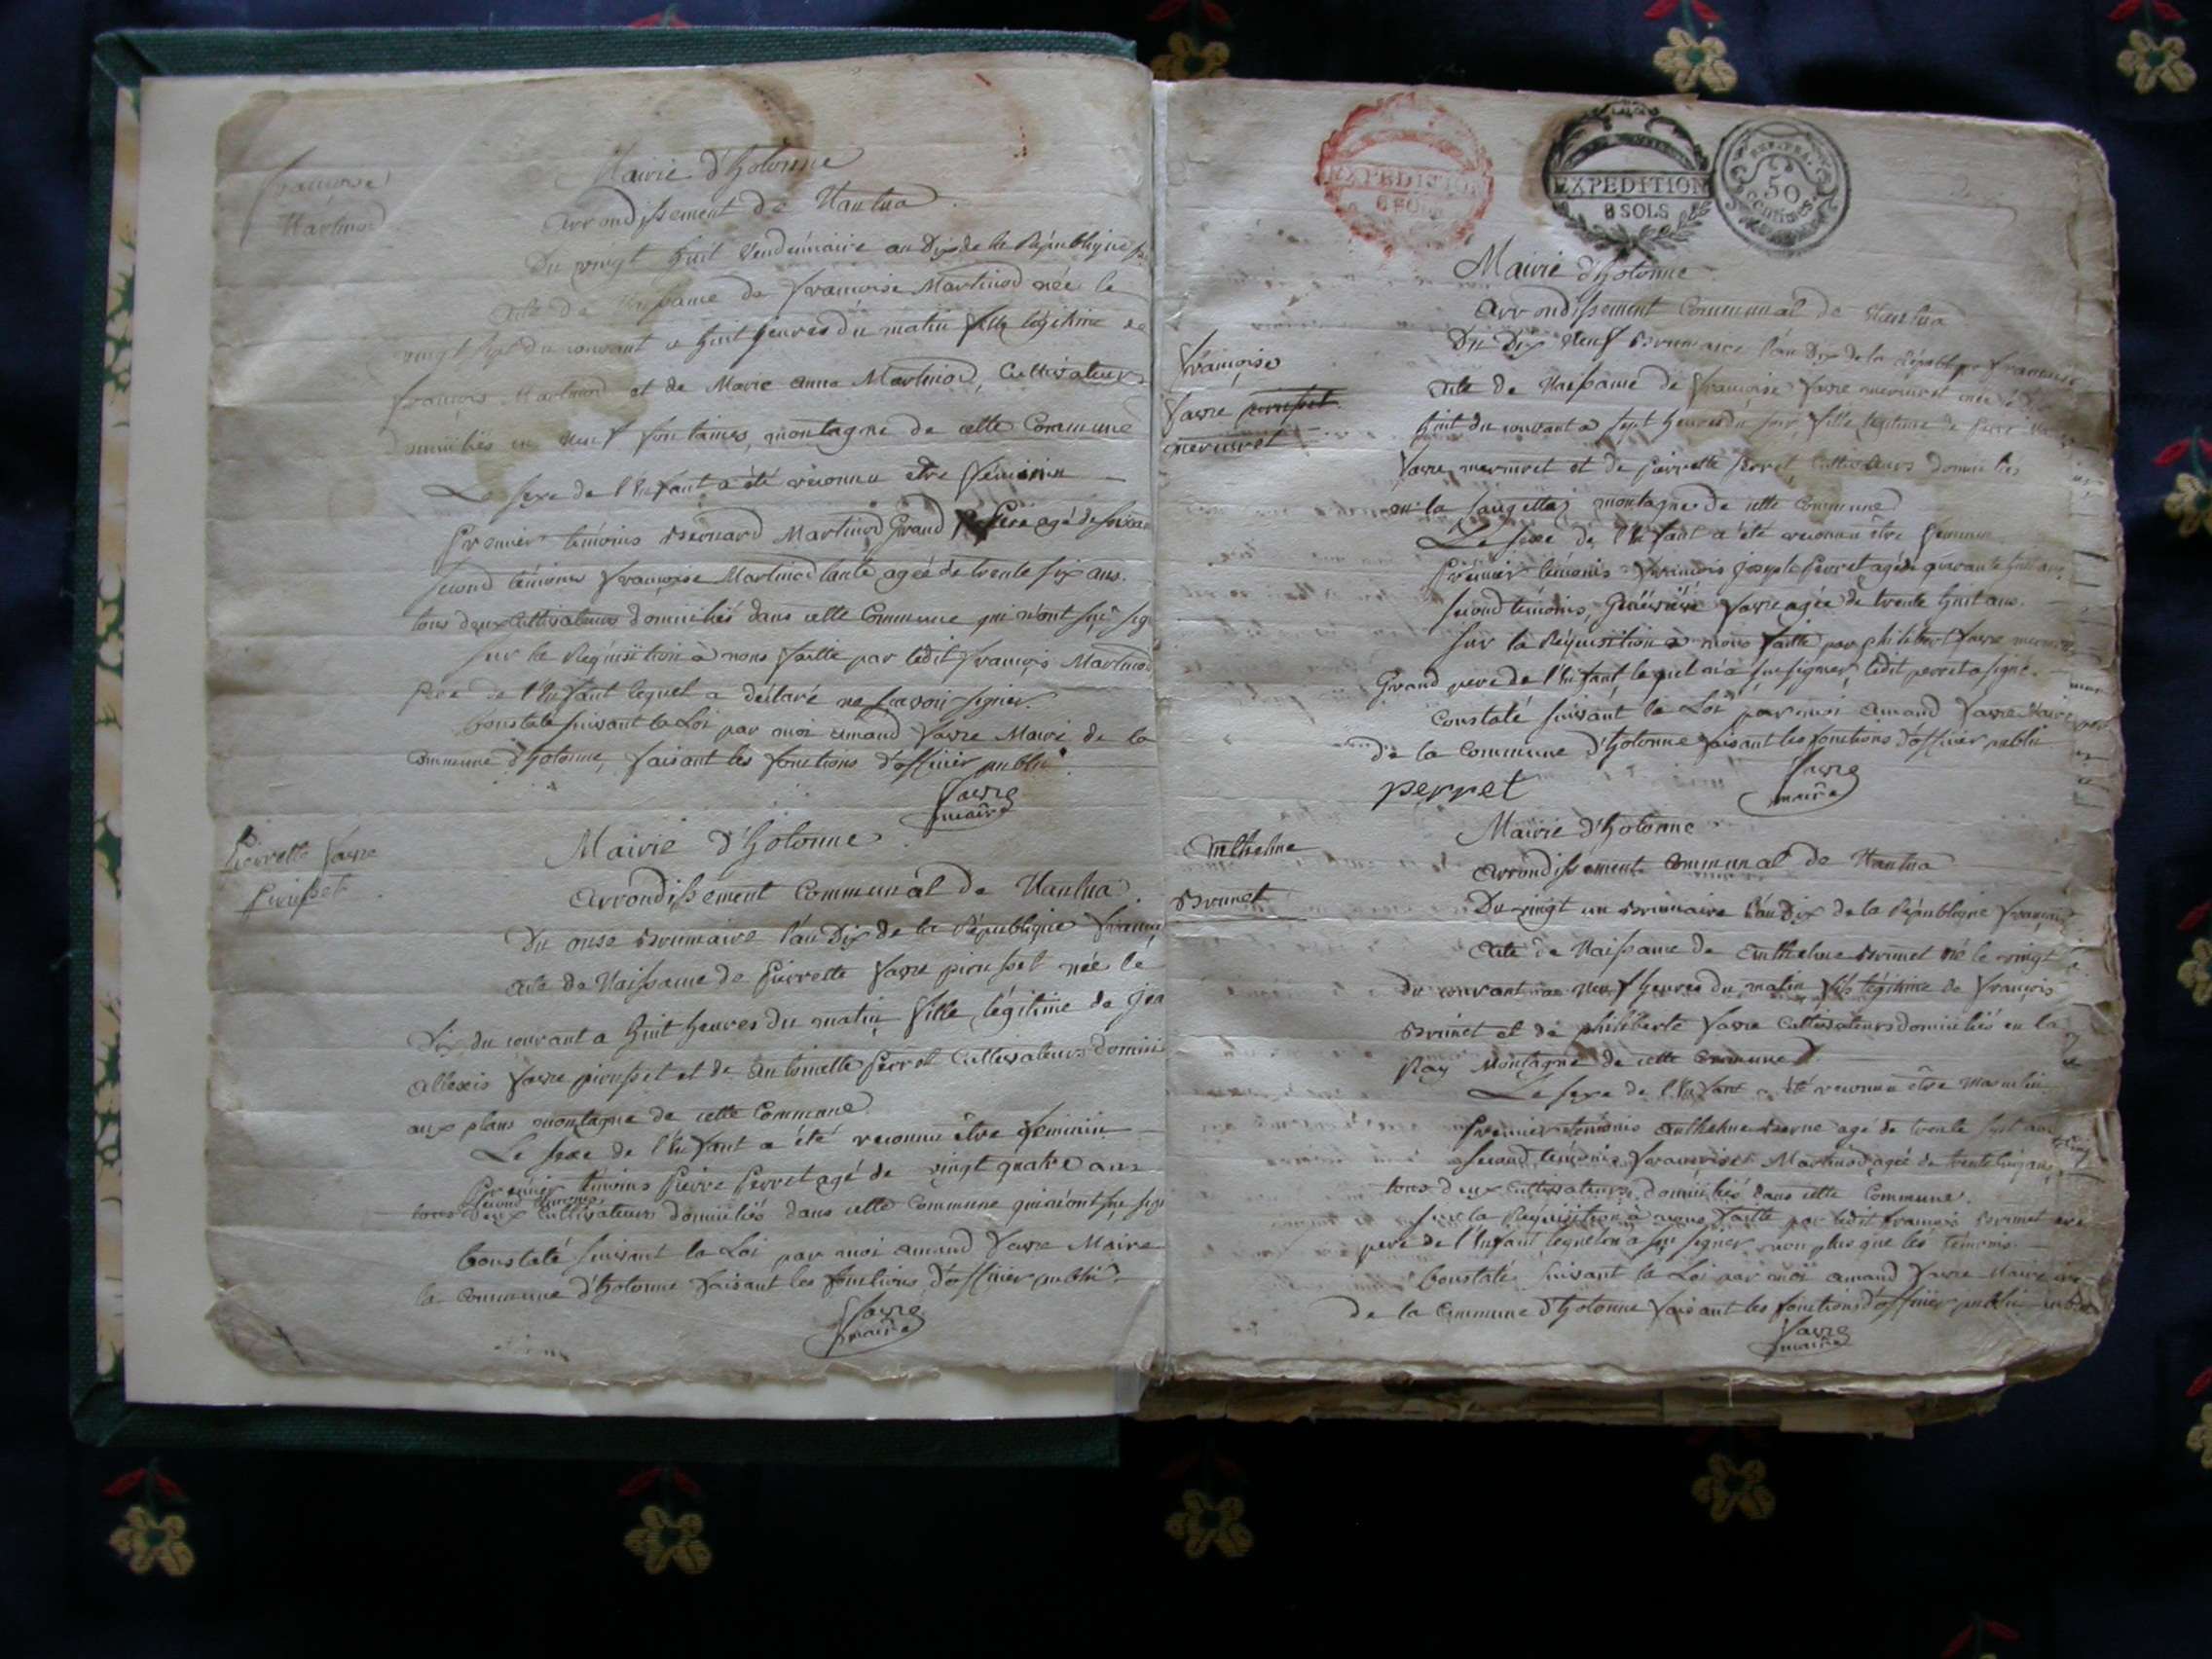 françoise
Martinod
Mairie d'hotonne
arrondissement de Nantua
Du vingt huit Vendémiaire an Dix de la République
acte de Naissance de françoise Martinod née le
vingt sept du courant a huit heures du matin fille légitime de
françois Martinod et de Marie anne Martinod, Cultivateurs
domiciliés en neuf fontaines, montagne de cette Commune
Le sexe de l'Enfant a été reconnu être féminin
Premier témoins Bernard Martinod Grand Pere agé de
second témoins françoise Martinod tante agée de trente six ans.
tous deux Cultivateurs domiciliés dans cette Commune qui n'ont sçu
sur la Réquisition à nous faitte par ledit françois Martinod
pere de l'Enfant lequel a déclaré ne sçavoir signer.
Constaté suivant la Loi par moi amand favre Maire de la
Commune d'hotonne, faisant les fonctions d'officier public.
favre
maire
Pierrette favre
pirusset
Mairie d'hotonne
arrondissement Communal de Nantua
Du onse Brumaire l'an Dix de la République
acte de Naissance de Pierrette favre pirusset née le
Dix du courant a huit heures du matin fille légitime de
allexis favre pirusset et de antoinette Perret Cultivateurs
aux plans montagne de cette Commune.
Le sexe de l'Enfant a été reconnu être féminin
Premier témoins Pierre Perret agé de vingt quatre ans
second témoins
tous deux Cultivateurs domiciliés dans cette Commune qui n'ont sçu
Constaté suivant la Loi par moi amand favre Maire
la Commune d'hotonne faisant les fonctions d'officier public.
favre
maire
EXPEDITION
EXPEDITION
8 SOLS
50
centimes
Mairie d'hotonne
arrondissement Communal de Nantua
françoise
favre pirusset
mermet
Du Dix neuf Brumaire l'an Dix de la République francaise
acte de Naissance de françoise favre mermet née le
huit du courant a sept heures du soir, fille légitime de
favre mermet et de pierrette Perret, Cultivateurs domiciliés
en la montagne de cette Commune
Le sexe de l'Enfant a été reconnu être féminin
Premier témoins françois joseph Perret agé de quarante huit ans
second témoins, favre agée de trente huit ans.
sur la Réquisition à nous faitte par philibert favre mermet
Grand pere de l'Enfant, lequel n'a sçu signer, ledit perret a signé.
Constaté suivant la Loi par moi amand favre Maire
de la Commune d'hotonne faisant les fonctions d'officier public
perret
favre
maire
Anthelme
Brunet
Mairie d'hotonne
arrondissement Communal de Nantua
Du vingt un Brumaire l'an Dix de la République
acte de Naissance de anthelme Brunet né le vingt
du courant a neuf heures du matin fils légitime de françois
Brunet et de philiberte favre Cultivateurs domiciliés en la
Ray Montagne de cette Commune.
Le sexe de l'Enfant a été reconnu être masculin
Premier témoins anthelme agé de trente sept ans
second témoins françoise Martinod agée de trente cinq ans,
tous deux Cultivateurs, domiciliés dans cette Commune.
sur la Réquisition à nous faitte par ledit françois Brunet
pere de l'Enfant lequel n'a sçu signer non plus que les témoins.
Constaté suivant la Loi par moi amand favre Maire
de la Commune d'hotonne faisant les fonctions d'officier public
favre
maire